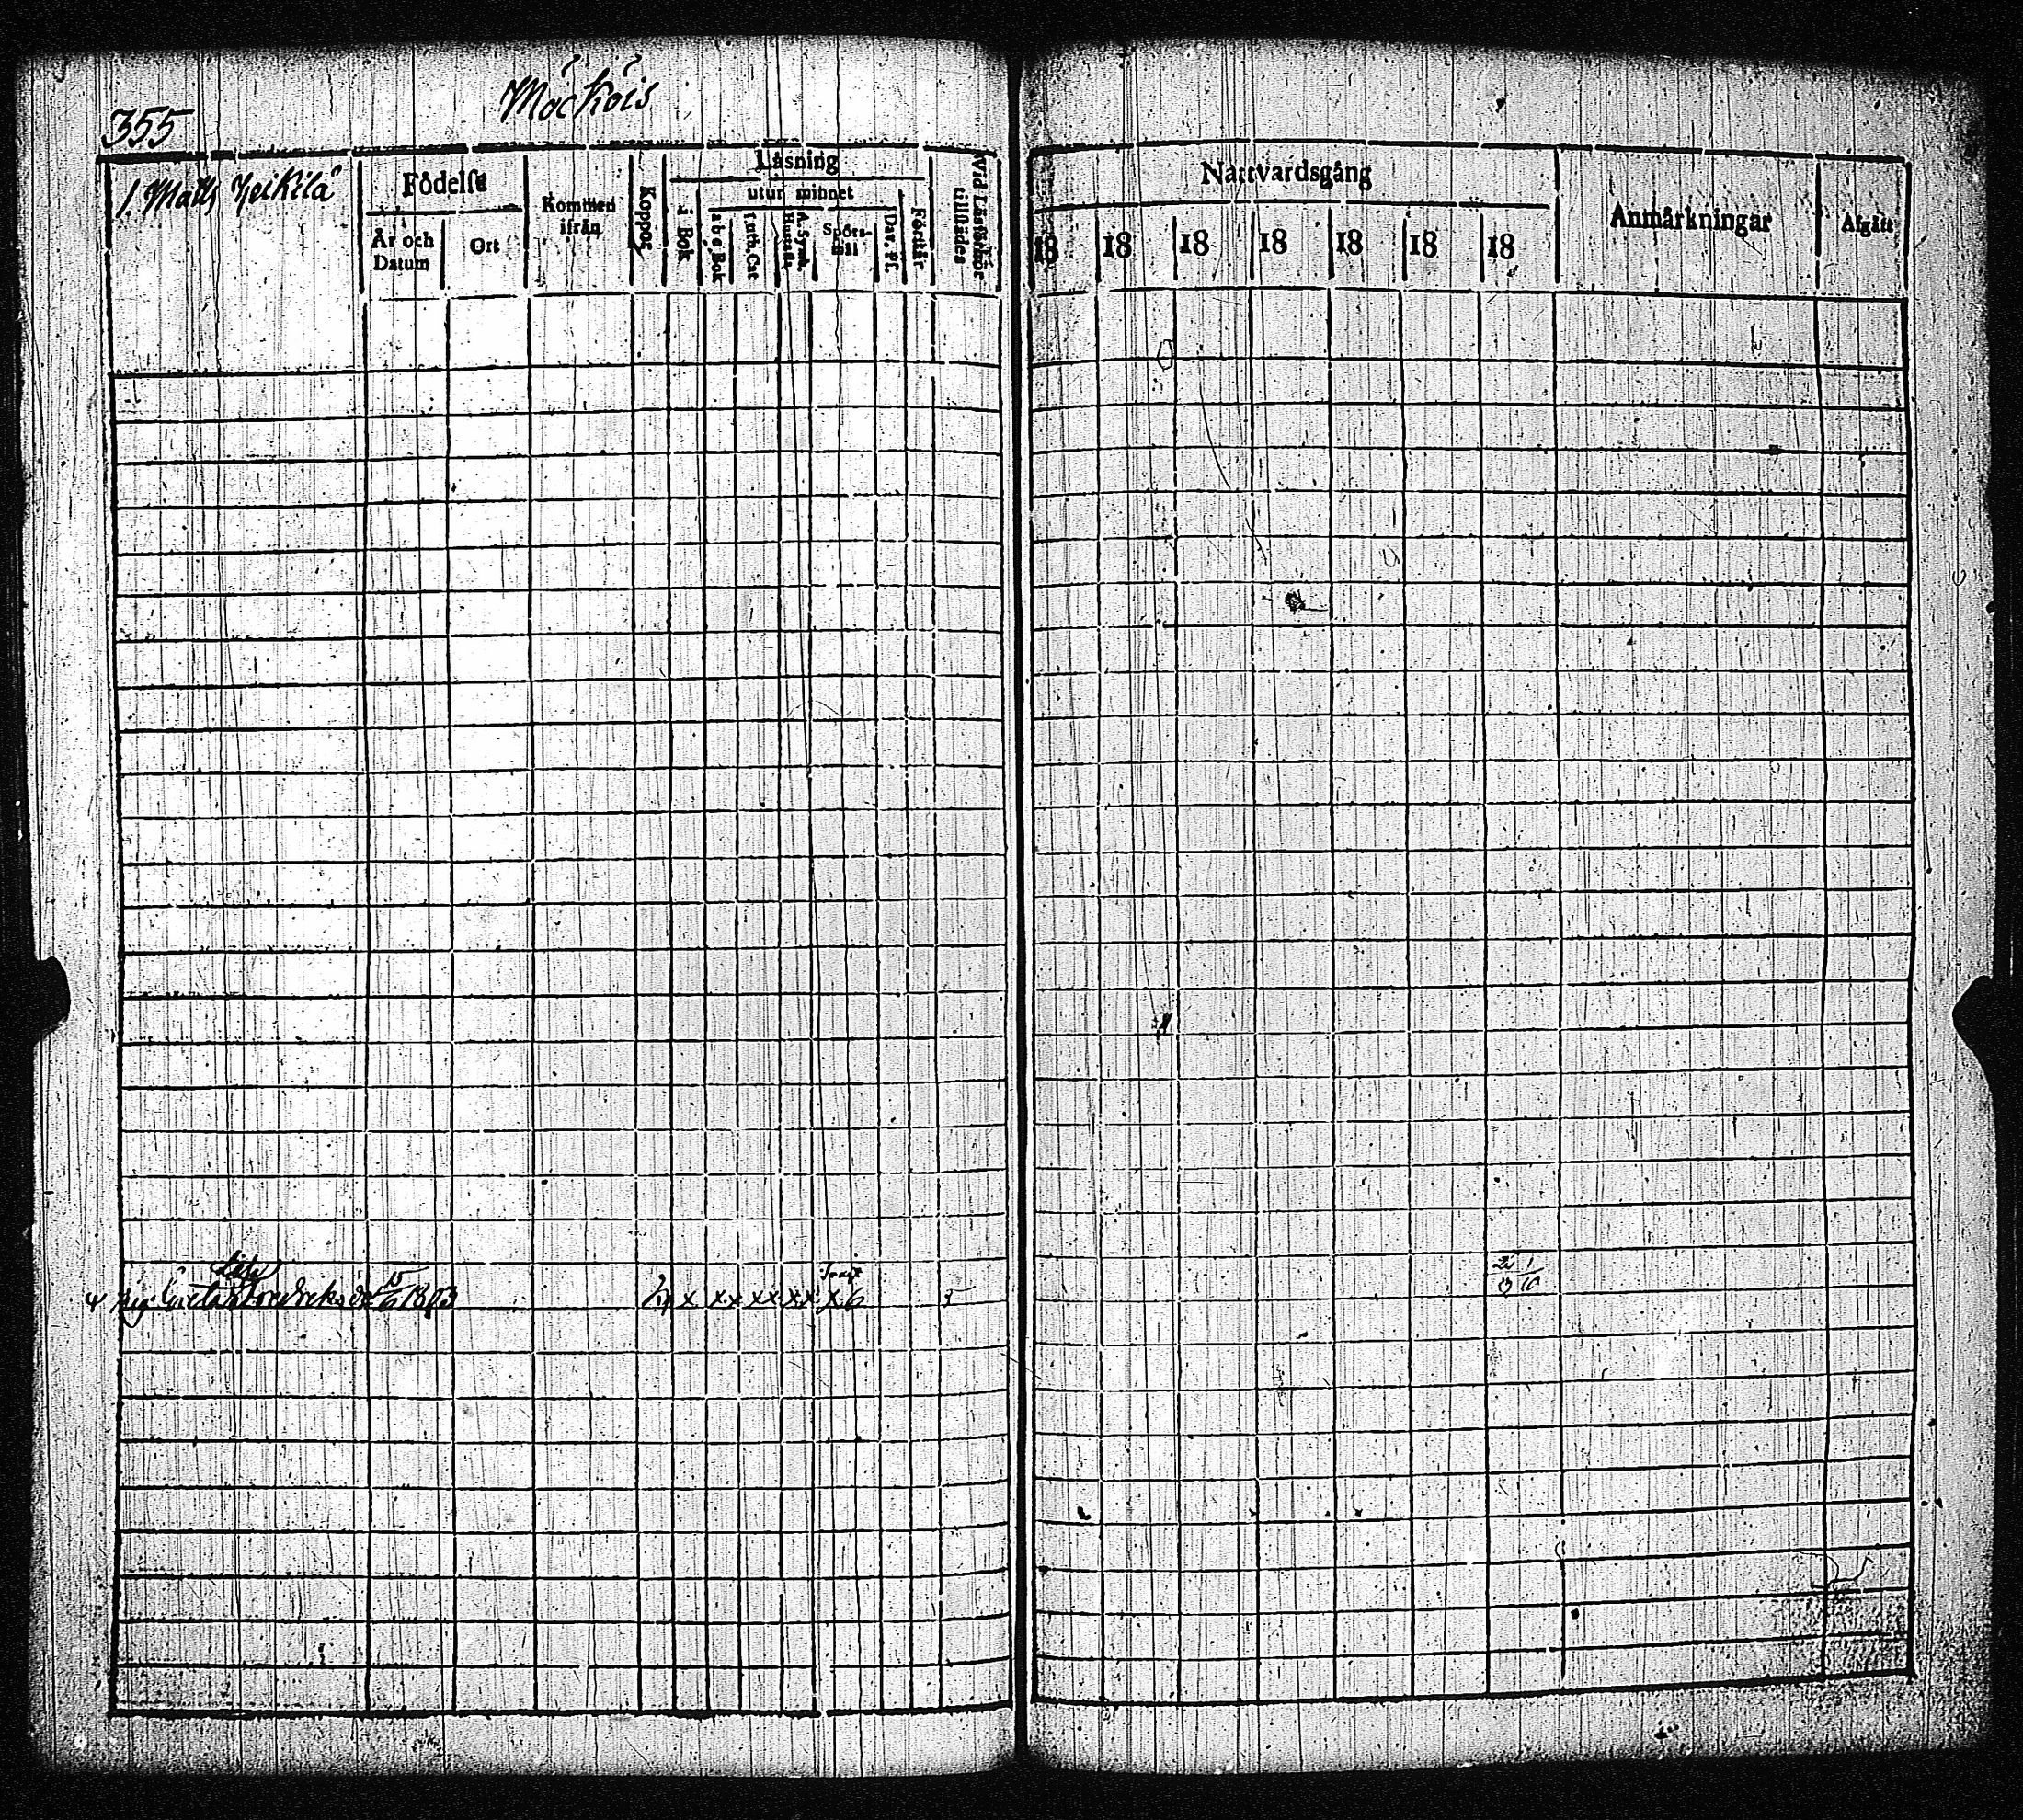 355
Mockois
1. Matts Heikilä
Födelse
År och Datum
Ort
Kommen ifrån
Koppor
Låsning
i Bok
utur minnet
a b c Bok
Luth. Cat
A. Symb. Hustafl.
Spörsmål
Dav. Ps.
Förstår
Vid Läsförhör tillstädes
Nattvardsgång
18 18 18 18 18 18 18
Anmärkningar
Afgått
Svagt
pig. Greta Fredriksdr 1803 x xx xx xx x 6